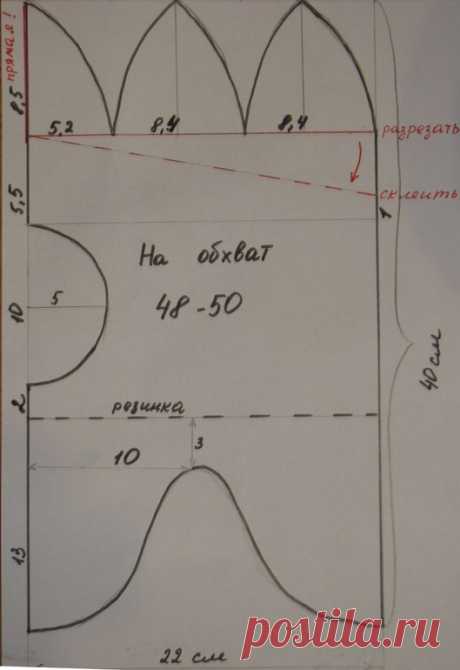 прямая!
8,5
5,2
8,4
8,4
разрезать
склеить
5,5
1
На обхват
48-50
5
10
40 см
2
резинка
3
10
13
22 см
postila.ru